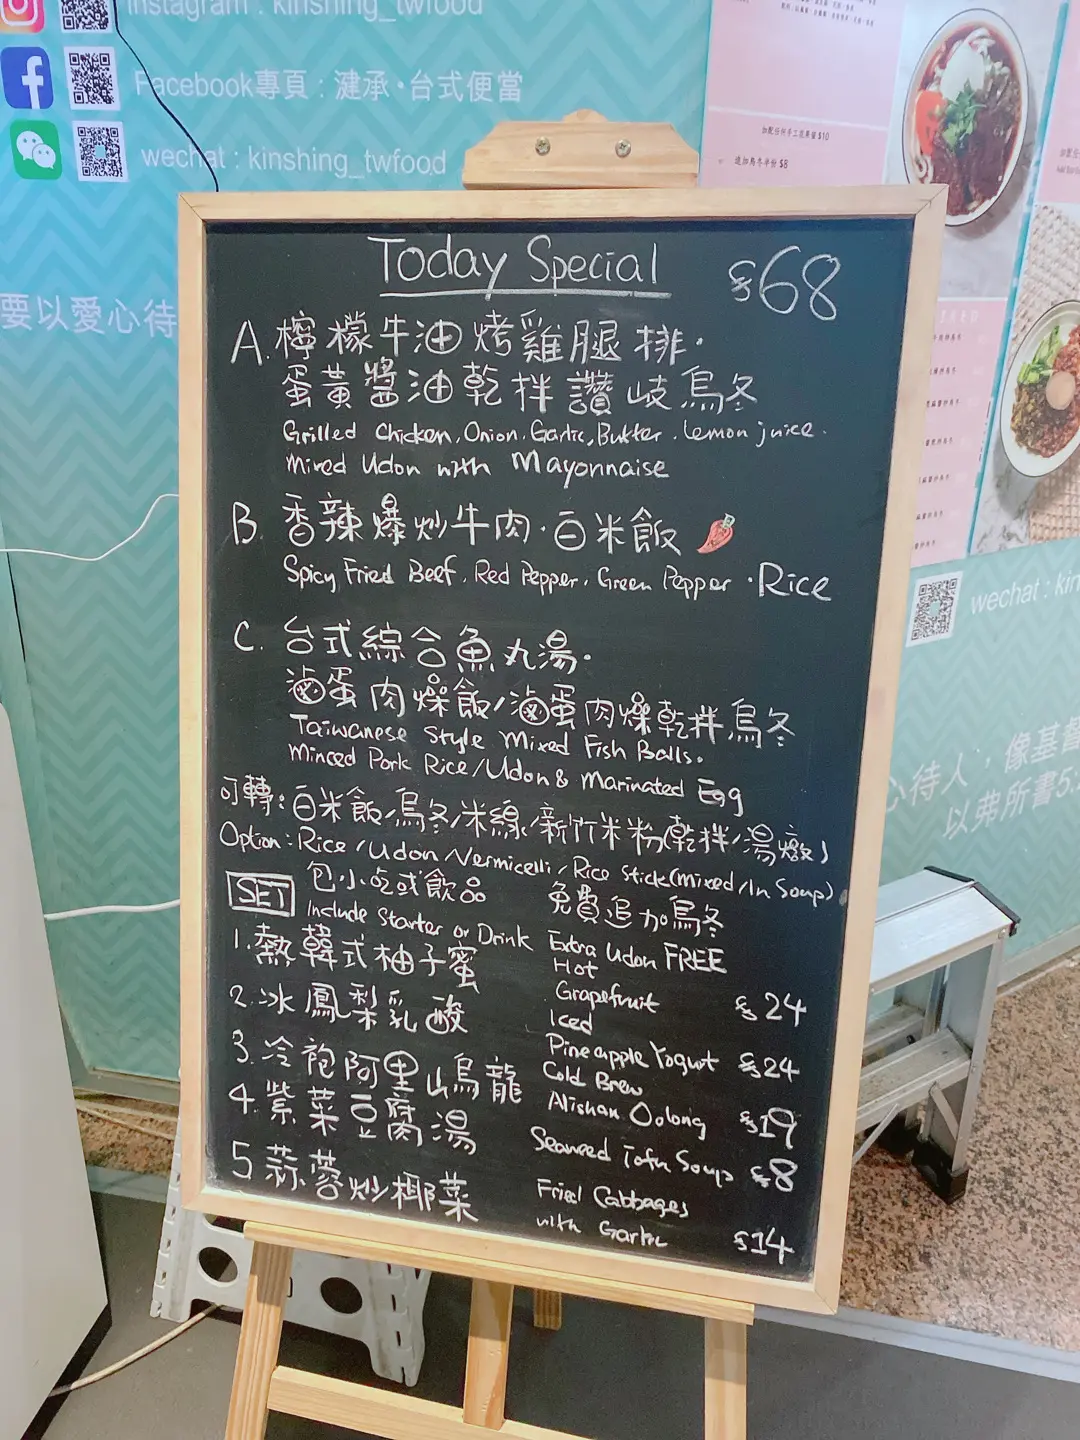 instagram : kinshing_twfood
Facebook專頁 : 漣承·台式便當
wechat : kinshing_twfood
要以愛心待
加配任何手工流烏蛋 $10
追加烏冬半份 $8
Today Special $68
A. 檸檬牛油烤雞腿排·
蛋黃醬油乾拌讚岐烏冬
Grilled Chicken, Onion, Garlic, Butter, Lemon juice.
Mixed Udon with Mayonnaise
B. 香辣爆炒牛肉·白米飯
Spicy Fried Beef, Red Pepper, Green Pepper · Rice
C. 台式綜合魚丸湯·
滷蛋肉燥飯/滷蛋肉燥乾拌烏冬
Taiwanese Style Mixed Fish Balls.
Minced Pork Rice/Udon & Marinated Egg
可轉: 白米飯/烏冬/米線/新竹米粉(乾拌/湯燉)
Option: Rice/Udon/Vermicelli/Rice Stick(Mixed/In Soup)
SET 包小吃或飲品 免費追加烏冬
Include Starter or Drink Extra Udon FREE
1. 熱韓式柚子蜜 Hot Grapefruit $24
2. 冰鳳梨乳酸 Iced Pineapple Yogurt $24
3. 冷袍阿里山烏龍 Cold Brew Alishan Oolong $19
4. 紫菜豆腐湯 Seaweed Tofu Soup $8
5 蒜蓉炒椰菜 Fried Cabbages with Garlic $14
wechat : kin
心待人，像基督
以弗所書5: